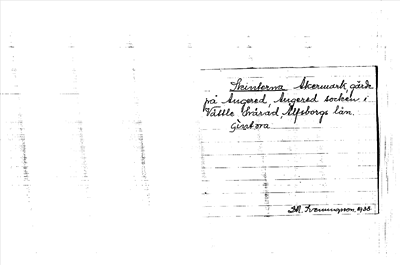 Skinterna Åkermark, gärde
på Angered, Angered socken i
Vättle härad Älfsborgs län.
Givet ova
Svenningson, 1933